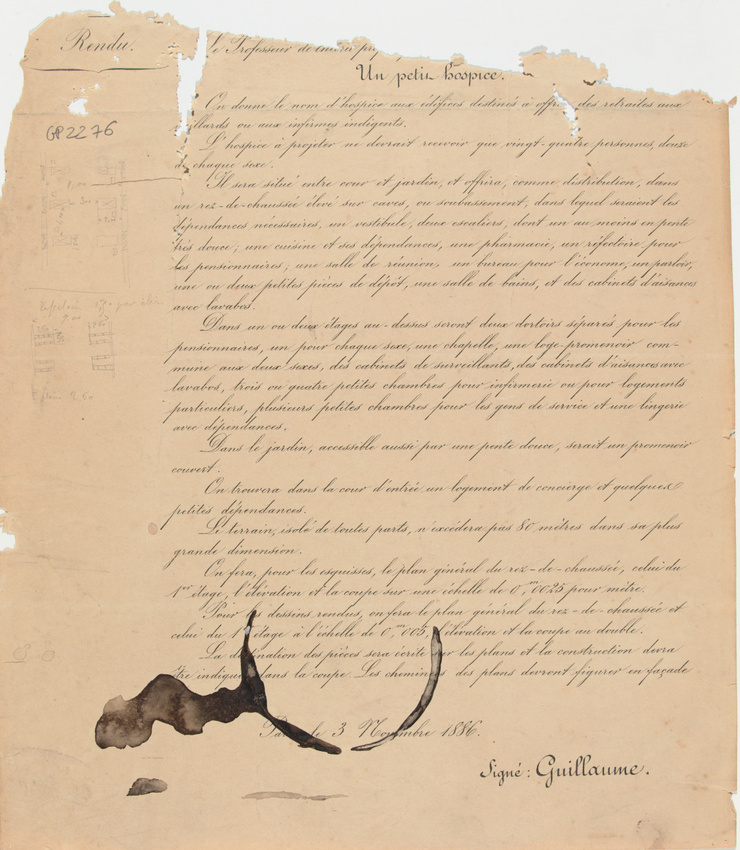 Rendu.
Le Professeur de
Un petit hospice.
GP2276
On donne le nom d'hospice aux édifices destinés à offrir des retraites aux
vieillards ou aux infirmes indigents.
L'hospice à projeter ne devrait recevoir que vingt-quatre personnes, douze
de chaque sexe.
Il sera situé entre cour et jardin, et offrira, comme distribution, dans
un rez-de-chaussée élevé sur caves, ou soubassement, dans lequel seraient les
dépendances nécessaires, un vestibule, deux escaliers, dont un au moins en pente
très douce; une cuisine et ses dépendances, une pharmacie, un réfectoire pour
les pensionnaires; une salle de réunion, un bureau pour l'économe, un parloir,
une ou deux petites pièces de dépôt, une salle de bains, et des cabinets d'aisances
avec lavabos.
Dans un ou deux étages au-dessus seront deux dortoirs séparés pour les
pensionnaires, un pour chaque sexe, une chapelle, une loge-promenoir com-
mune aux deux sexes, des cabinets de surveillants, des cabinets d'aisances avec
lavabos, trois ou quatre petites chambres pour infirmerie ou pour logements
particuliers, plusieurs petites chambres pour les gens de service et une lingerie
avec dépendances.
Dans le jardin, accessible aussi par une pente douce, serait un promenoir
couvert.
On trouvera dans la cour d'entrée un logement de concierge et quelques
petites dépendances.
Le terrain, isolé de toutes parts, n'excédera pas 80 mètres dans sa plus
grande dimension.
On fera, pour les esquisses, le plan général du rez-de-chaussée, celui du
1er étage, l'élévation et la coupe sur une échelle de 0,m0025 pour mètre.
Pour les dessins rendus, on fera le plan général du rez-de-chaussée et
celui du 1er étage à l'échelle de 0,m005, l'élévation et la coupe au double.
La destination des pièces sera écrite sur les plans et la construction devra
être indiquée dans la coupe. Les cheminées des plans devront figurer en façade
Paris le 3 Novembre 1886.
Signé: Guillaume.